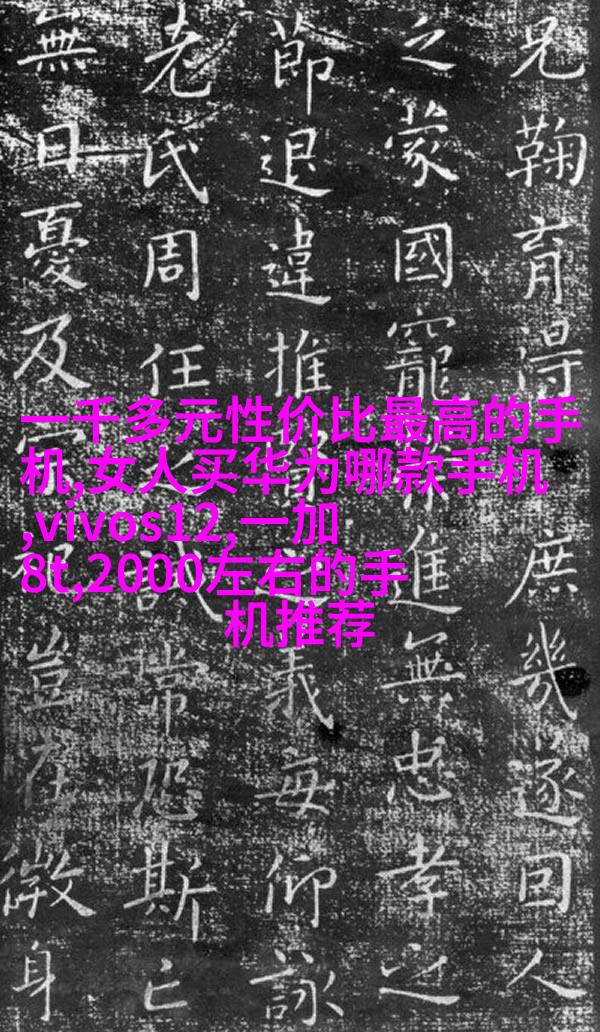 一千多元性价比最高的手
机,女人买华为哪款手机
,vivos12,一加
8t,2000左右的手
机推荐
兄鞠育得庶幾遂回人
之蒙國寵進無忠孝之
節退違推義每仰詠
老氏周任常恐斯亡
無日憂及豈在微身